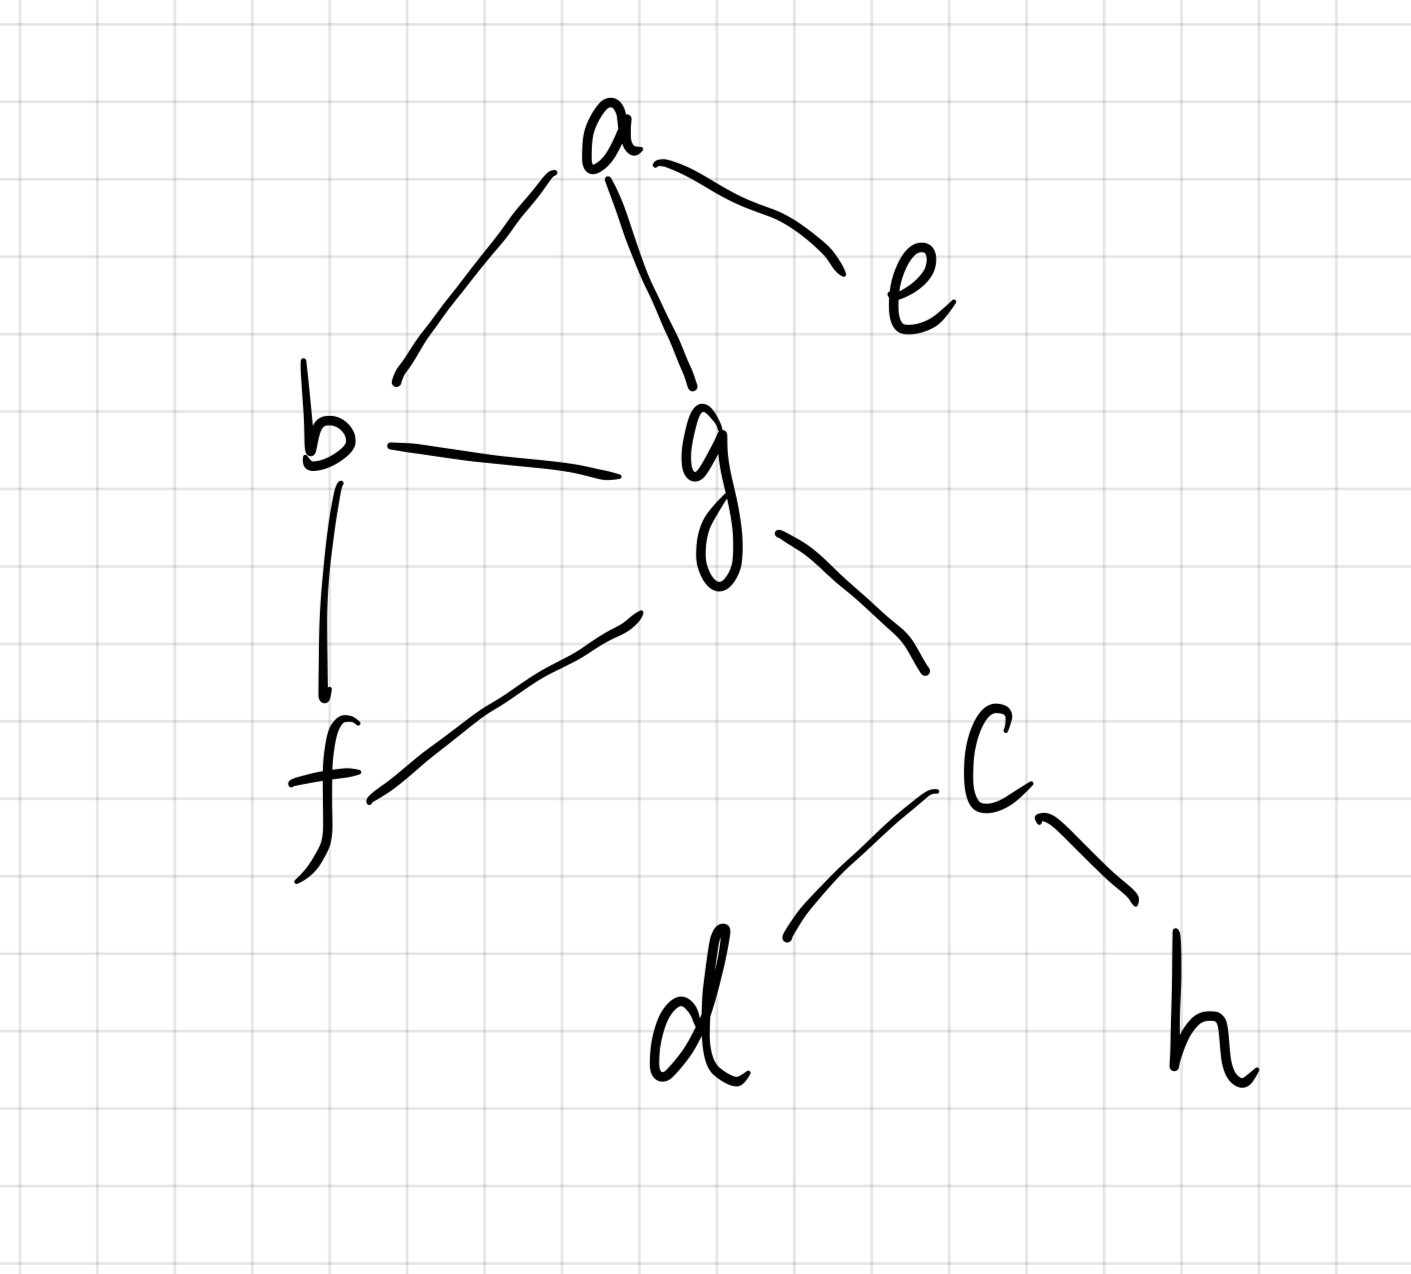 a
e
b
g
f
c
d
h